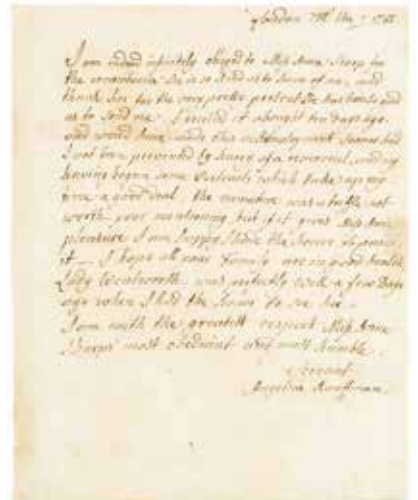 London
I am indeed infinitely obliged to Miss Anne Sharp for
the remembrance She is so kind as to have of me, and
thank her for the very pretty present She has been so kind
as to send me. I received it about ten days ago.
and would have made this acknowledgement sooner had
I not been prevented by hurry of a removal, and my
having begun some Portraits which take up my
time a good deal. the miniature was a trifle not
worth your mentioning but if it gives Miss Anne
pleasure I am happy
it — I hope all your family are in good health
Lady Wentworth was perfectly well a few Days
ago when I had the honor to see her.
I am with the greatest respect Miss Anne
Sharps most obedient and most humble
Servant
Angelica Kauffman